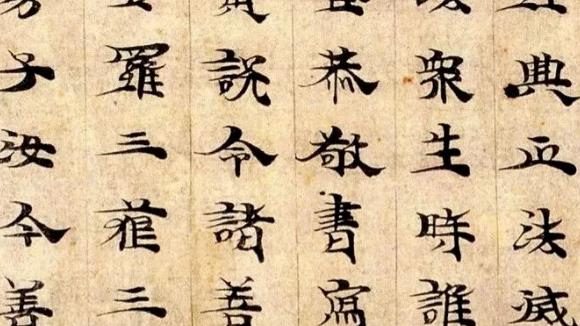 典正法滅
衆生時誰
恭敬書寫
說令諸善
羅三藐三
子汝今善